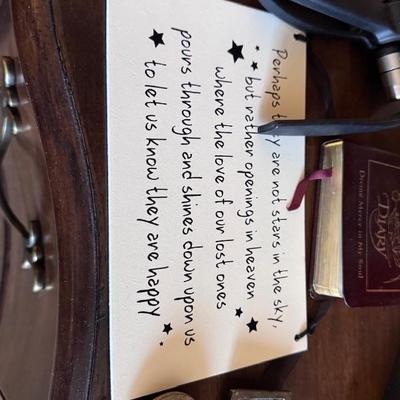 Perhaps they are not stars in the sky,
but rather openings in heaven
where the love of our lost ones
pours through and shines down upon us
to let us know they are happy
DIARY
Divine Mercy in My Soul